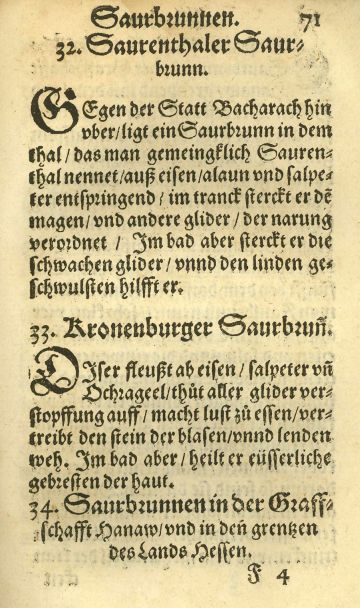 Saurbrunnen. 71
32. Saurenthaler Saur-
brunn.
GEgen der Statt Bacharach hin
vber/ligt ein Saurbrunn in dem
thal/das man gemeingklich Sauren-
thal nennet/auß eisen/alaun vnd salpe-
ter entspringend/im tranck sterckt er dẽ
magen/vnd andere glider/der narung
verordnet/ Im bad aber sterckt er die
schwachen glider/vnnd den linden ge-
schwulsten hilfft er.
33. Kronenburger Saurbruñ.
DIser fleußt ab eisen/salpeter vñ
Ochrageel/thůt aller glider ver-
stopffung auff/macht lust zů essen/ver-
treibt den stein der blasen/vnnd lenden
weh. Im bad aber/heilt er eüsserliche
gebresten der haut.
34. Saurbrunnen in der Graff-
schafft Hanaw/vnd in deñ grentzen
des Lands Hessen.
F 4